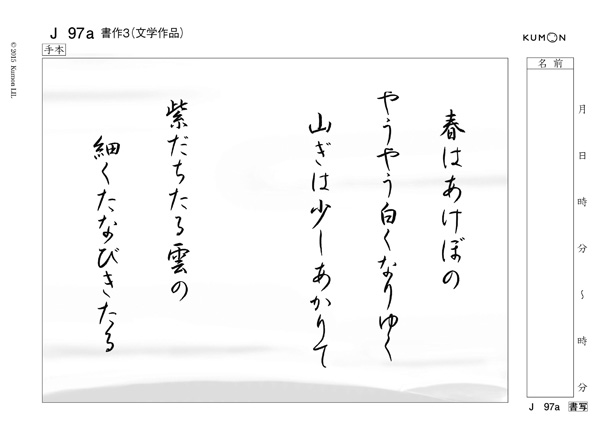 J 97a 書作3(文学作品)
KUMON
手本
© 2015 Kumon LIL.
春はあけぼの
やうやう白くなりゆく
山ぎは少しあかりて
紫だちたる雲の
細くたなびきたる
名前
月 日 時 分 ~ 時 分
J 97a 書写